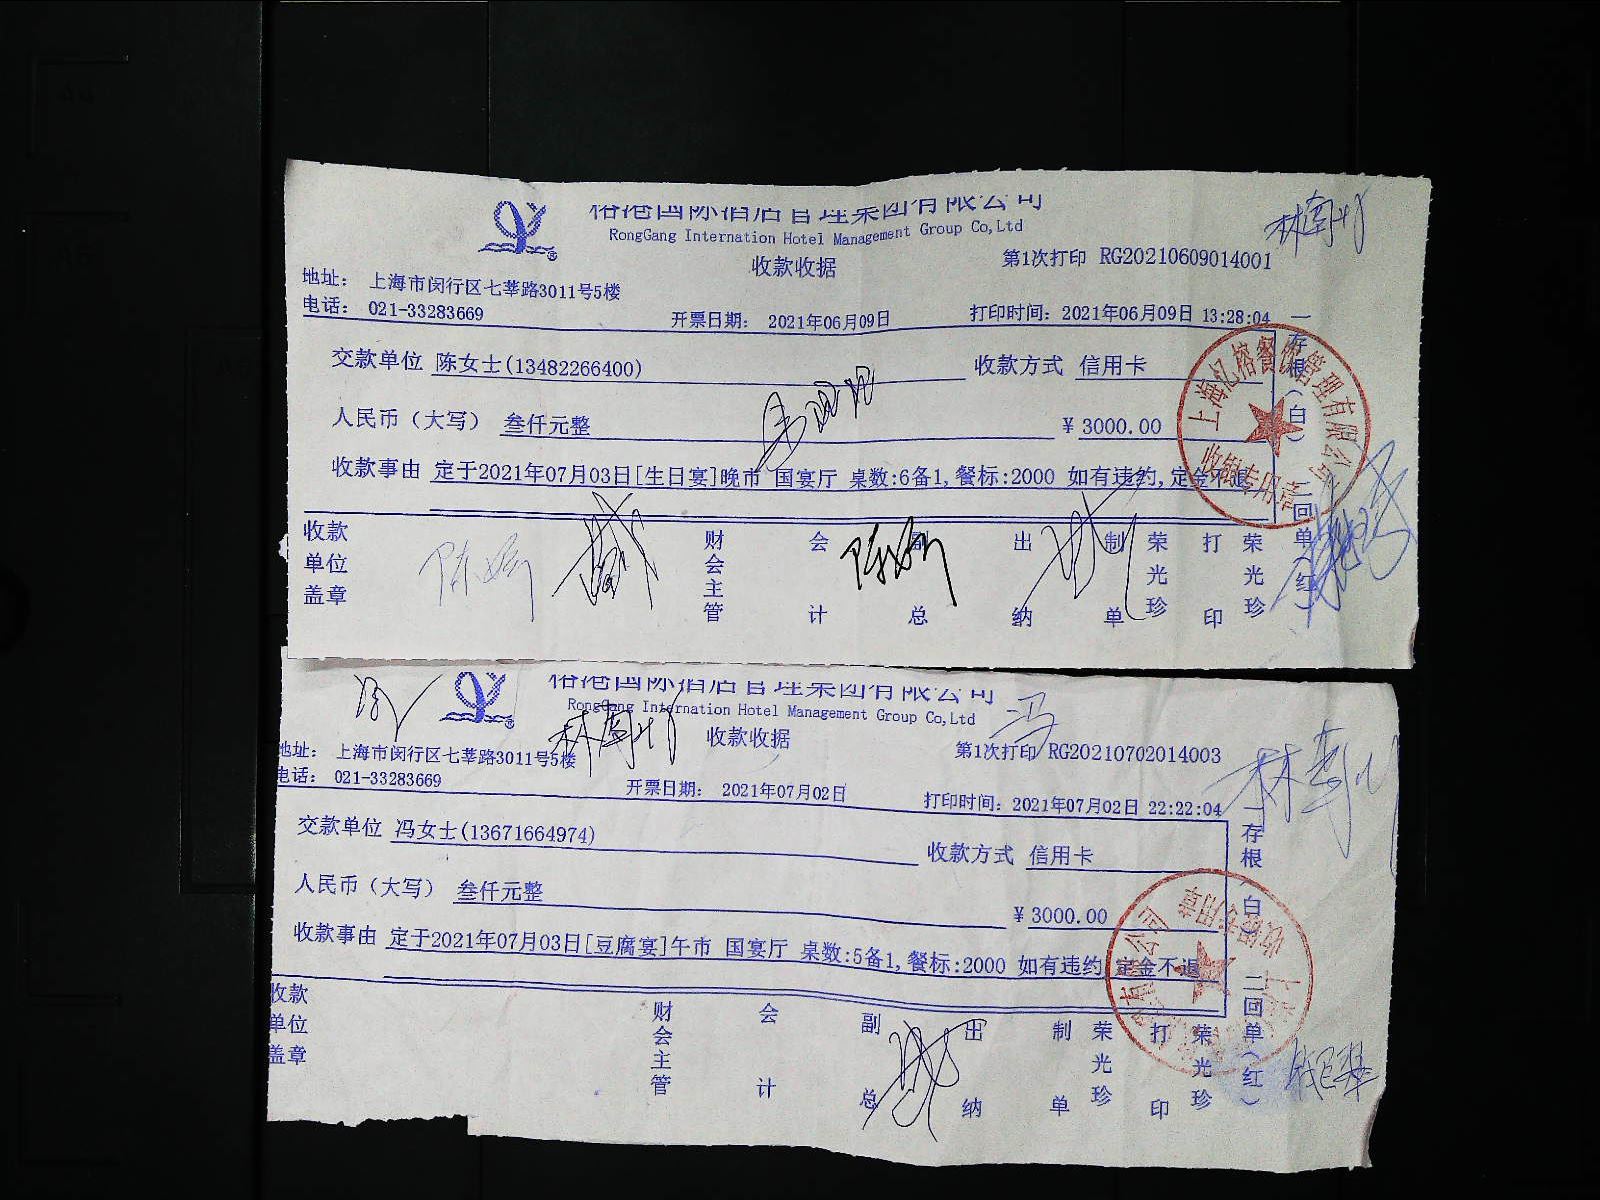 榕港国际酒店管理集团有限公司
RongGang Internation Hotel Management Group Co,Ltd
林南
收款收据
第1次打印 RG20210609014001
地址： 上海市闵行区七莘路3011号5楼
电话： 021-33283669
开票日期： 2021年06月09日
打印时间：2021年06月09日 13:28:04
交款单位 陈女士(13482266400)
收款方式 信用卡
人民币（大写） 叁仟元整
￥3000.00
收款事由 定于2021年07月03日[生日宴]晚市 国宴厅 桌数:6备1,餐标:2000 如有违约,定金不退
一存根（白） 二回单（红）
上海忆榕餐饮管理有限公司
收银专用章
收款单位盖章
财会主管
会计
副总
出纳
制单
荣光珍
打印
荣光珍
榕港国际酒店管理集团有限公司
RongGang Internation Hotel Management Group Co,Ltd
冯
林南
收款收据
第1次打印 RG20210702014003
地址： 上海市闵行区七莘路3011号5楼
电话： 021-33283669
开票日期： 2021年07月02日
打印时间：2021年07月02日 22:22:04
交款单位 冯女士(13671664974)
收款方式 信用卡
人民币（大写） 叁仟元整
￥3000.00
收款事由 定于2021年07月03日[豆腐宴]午市 国宴厅 桌数:5备1,餐标:2000 如有违约,定金不退
一存根（白） 二回单（红）
收款单位盖章
财会主管
会计
副总
出纳
制单
荣光珍
打印
荣光珍